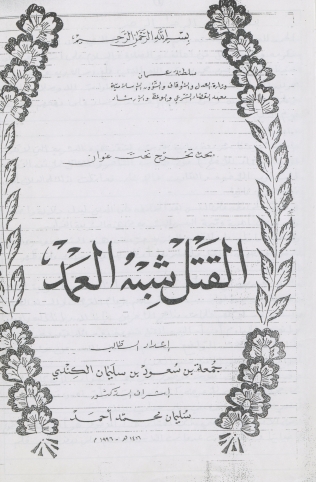 بسم الله الرحمن الرحيم
سلطنة عمان
وزارة العدل والأوقاف والشؤون الإسلامية
معهد القضاء الشرعي والوعظ والإرشاد
بحث تخرج تحت عنوان
القتل شبه العمد
إعداد الطالب
جمعة بن سعود بن سليمان الكندي
إشراف الدكتور
سليمان محمد أحمد
١٤١٦ هـ - ١٩٩٦ م